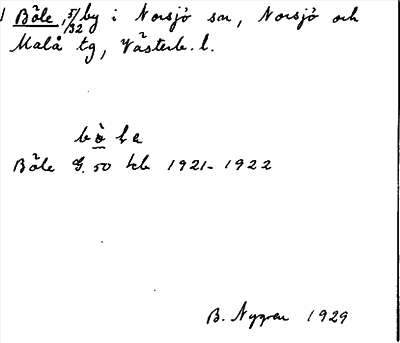 Böle, 5/32 by i Norsjö sn, Norsjö och
Malå tg, Västerb. l.
Böle G. 50 kb 1921-1922
B. Nygren 1929